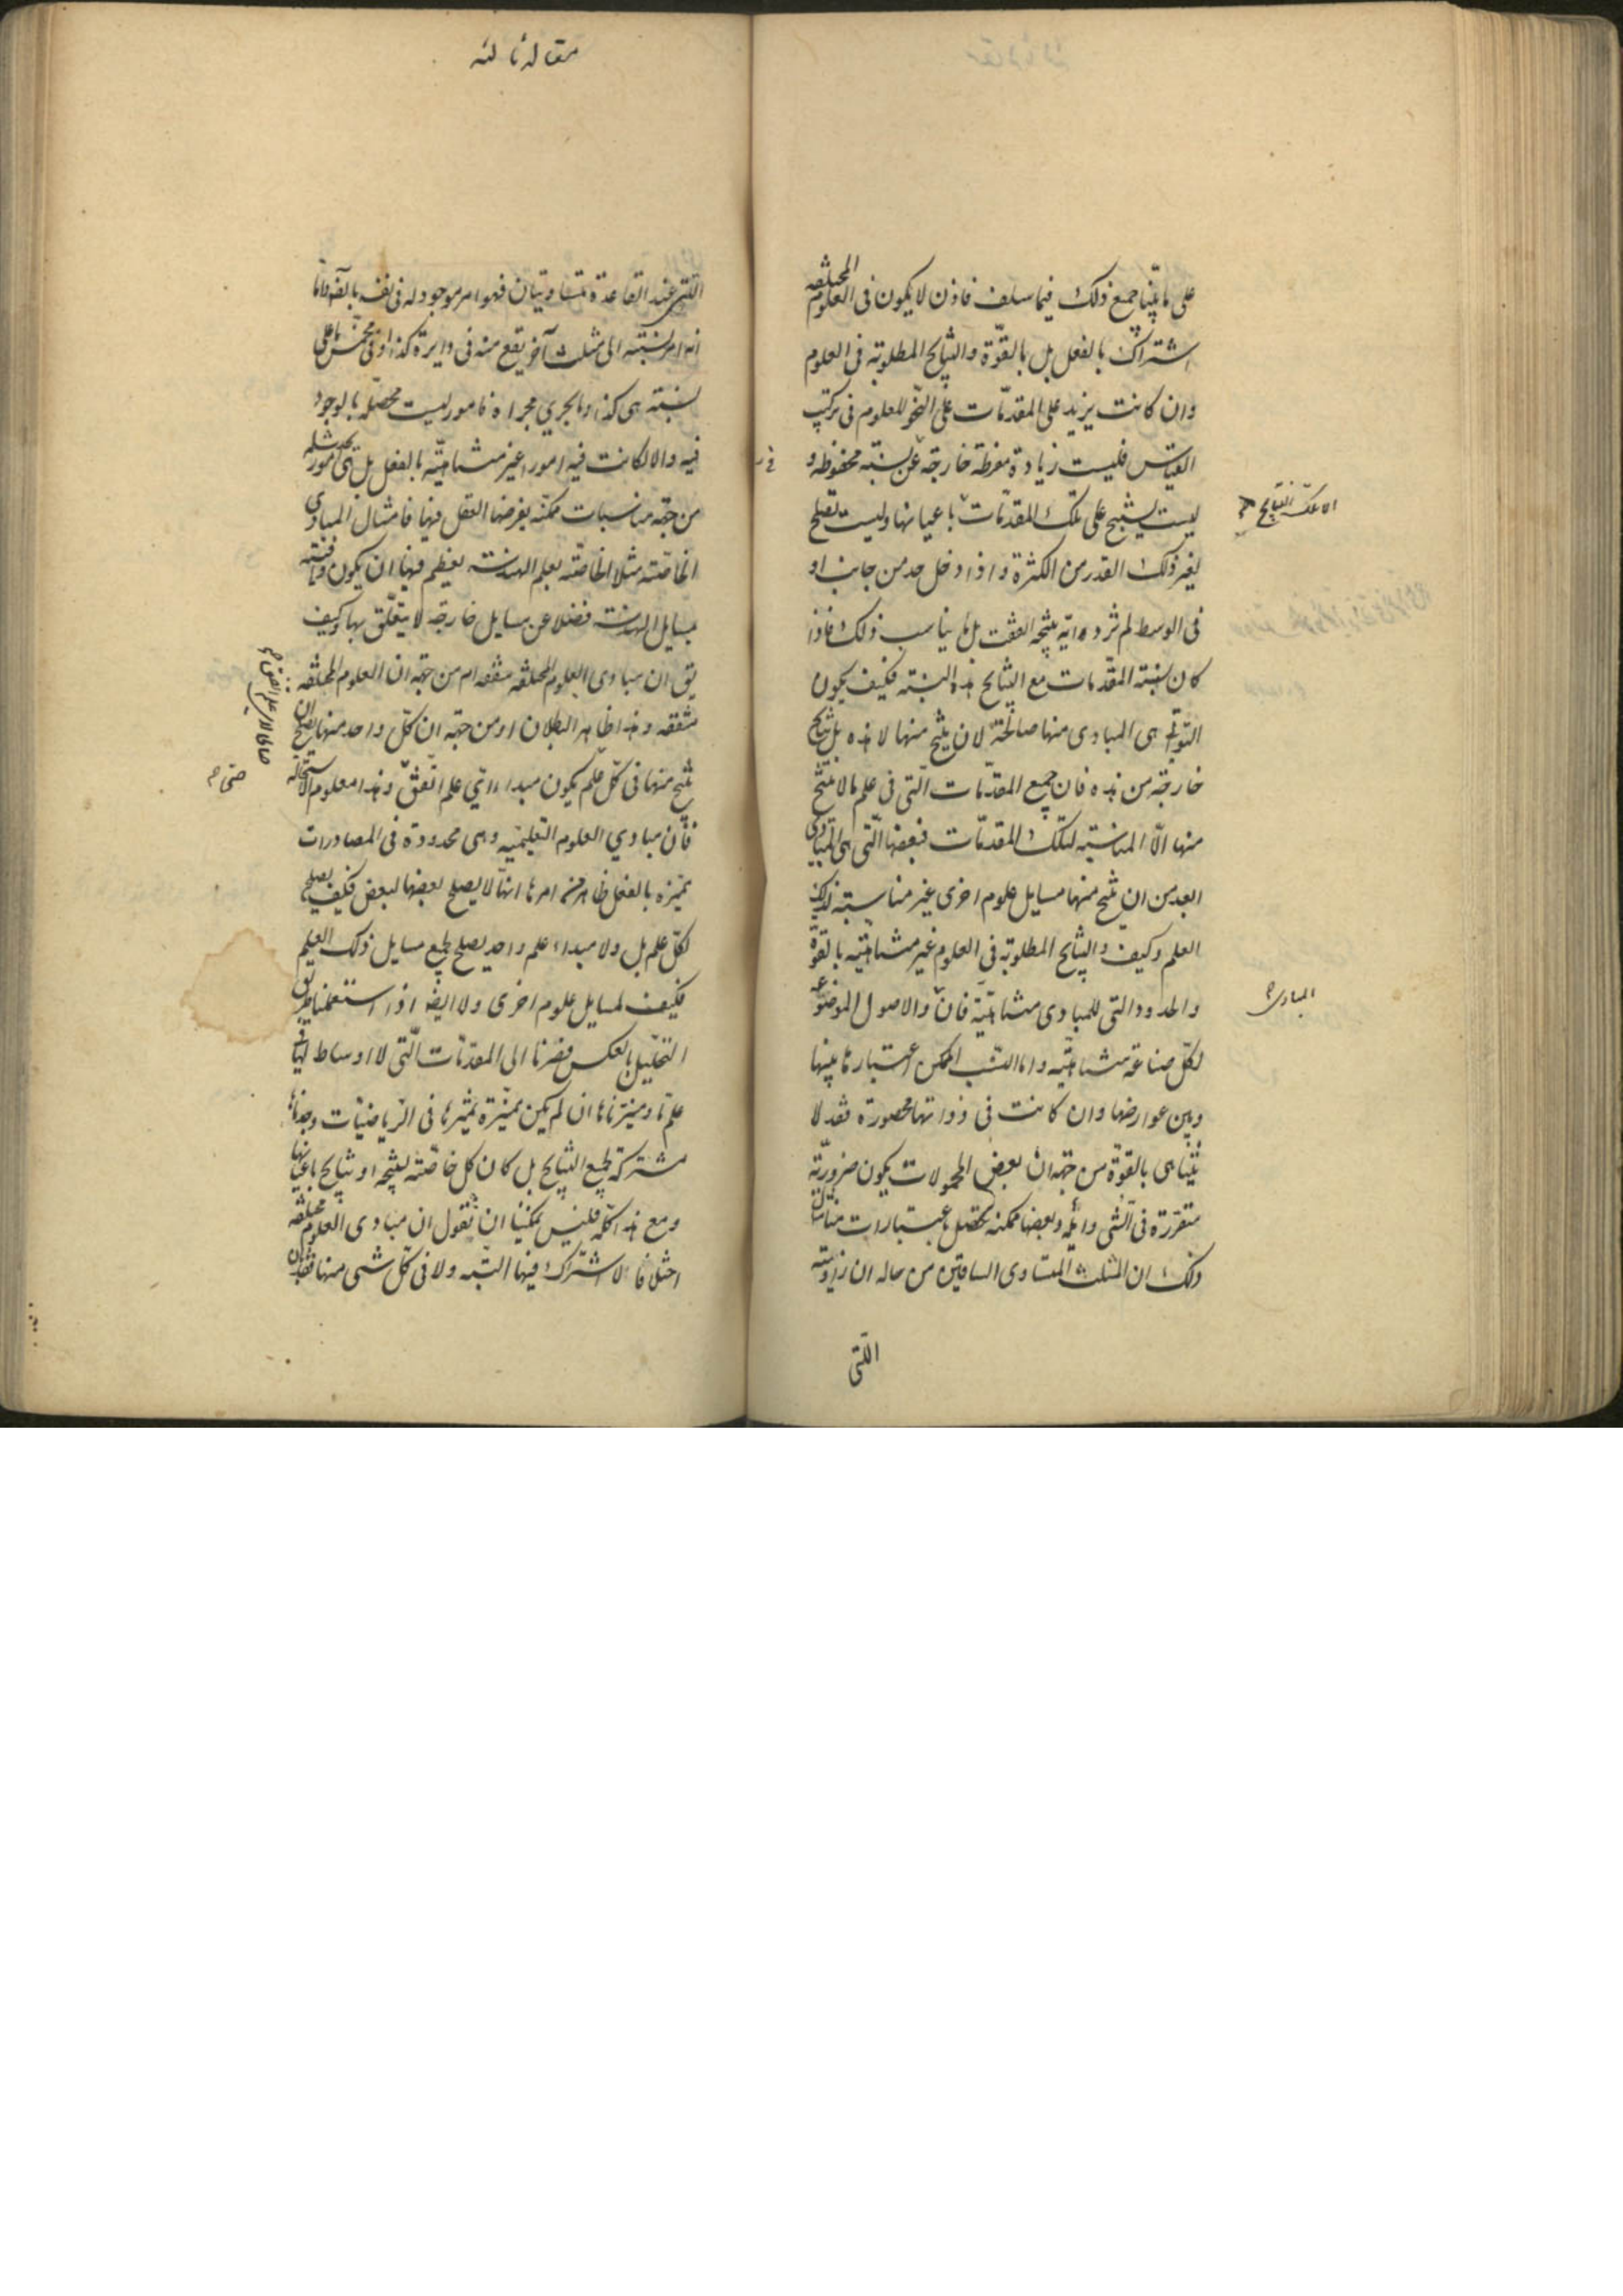 على ما بيّنا جميع ذلك فيما سلف فاذن لا يكون فى العلوم المختلفه
اشتراك بالفعل بل بالقوّة والنتايج المطلوبة فى العلوم
وان كانت يزيد على المقدمات على النحو للعلوم فى تركيب
القياس فليست زيادة مفرطة خارجة عن نسبته محفوظه و
ليست ينتج على تلك المقدمات باعيانها وليست تصلح
الا تلك النتايج
لغير ذلك القدر من الكثرة واذا دخل حد من جانب او
فى الوسط لم ثرد اية نتيجه اتفقت بل ما يناسب ذلك فاذا
كان نسبته المقدمات مع النتايج هذه النسبته فكيف يكون
التى هى المبادى منها صالحة لان ينتج منها لا هذه بل نتايج
خارجة من هذه فان جميع المقدمات التى فى علم ما لا ينتج
منها الّا المناسبته لتلك المقدمات فبعضها التى هى المبادى
ابعد من ان ينتج منها مسايل علوم اخرى غير مناسبته لذلك
العلم وكيف والنتايج المطلوبة فى العلوم غير متناهيّة بالقوة
والحدود التى للمبادى متناهيّة فان والاصول الموضوعه
المبادى
لكل صناعة متناهيّة واما النسب الممكن اعتبارها بينها
وبين عوارضها وان كانت فى ذواتها محصورة فقد لا
يتناهى بالقوة من جهة ان بعض المحمولات يكون ضرورية
متقررة فى الشى دائمه وبعضها ممكنه تحصل باعتبارات مثال
ذلك ان المثلث المتساوى الساقين من حاله ان زاويته
اللتى
مقاله ثالثه
اللتى عند القاعدة متساويتان فهو امر موجود له فى نفسه بالفعل واما
انه امر نسبته الى مثلث آخر يقع منه فى دايرة كذا او فى مخمس ما على
نسبته هى كذا وما يجرى مجراه فامور ليست محصلة بالوجود
فيه والا لكانت فيه امور غير متناهيّه بالفعل بل هى امور
من جهة مناسبات ممكنه يفرضها العقل فيها فامثال المبادى
الخاصّة مثلا الخاصّة بعلم الهندسه يعظم فيها ان يكون وافية
بمسايل الهندسه فضلا عن مسايل خارجة لا يتعلّق بها وكيف
يق ان مبادى العلوم المختلفه متفقه ام من جهة ان العلوم المختلفه
متفقه وهذا ظاهر البطلان او من جهة ان كل واحد منها يصلح ان
ينتج منها فى كل علم يكون مبداء اى علم اتفق وهذا معلوم الاستحالة
حتى
فان مبادى العلوم التعليميّه وهى محدودة فى المصادرات
مميزه بالفعل ظاهر من امرها انها لا يصلح بعضها لبعض فكيف يصلح
لكل علم بل ولا مبداء علم واحد يصلح لجميع مسايل ذلك العلم
فكيف لمسايل علوم اخرى ولا ايضا اذا استعملنا طريق
التحليل بالعكس فصرنا الى المقدمات التى لا اوساط لها فى
علم ما وميزناها ان لم يكن مميزة تميزها فى الرياضيّات وجدناها
مشتركة لجميع النتايج بل كان كل خاصّة لنتيجه او نتايج باعيانها
ومع هذا كله فليس يمكننا ان نقول ان مبادى العلوم مختلفه
اختلافا لا اشتراك فيها البتّه ولا فى كل شى منها